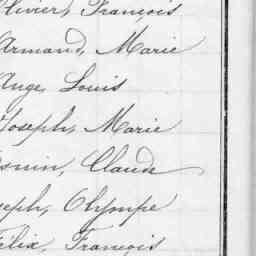 Olivier, François
Armand, Marie
Ange, Louis
Joseph, Marie
Claude
Joseph, Olympe
Félix, François